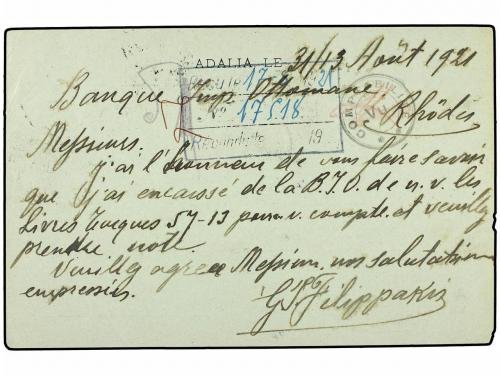 ADALIA, LE 31/13 Août 1921
Reçu le 17 1921
Banque Imp. Ottomane
No. 17518
Rhôdes
Répondu le 19
Messieurs.
j'ai l'honneur de vous faire savoir
que j'ai encaissé de la B.I.O. de n.v. les
Livres turques 57-13 pour v. compte et veuillez
prendre note
Veuillez agréer Messieurs nos salutations
empressées.
Filippakis